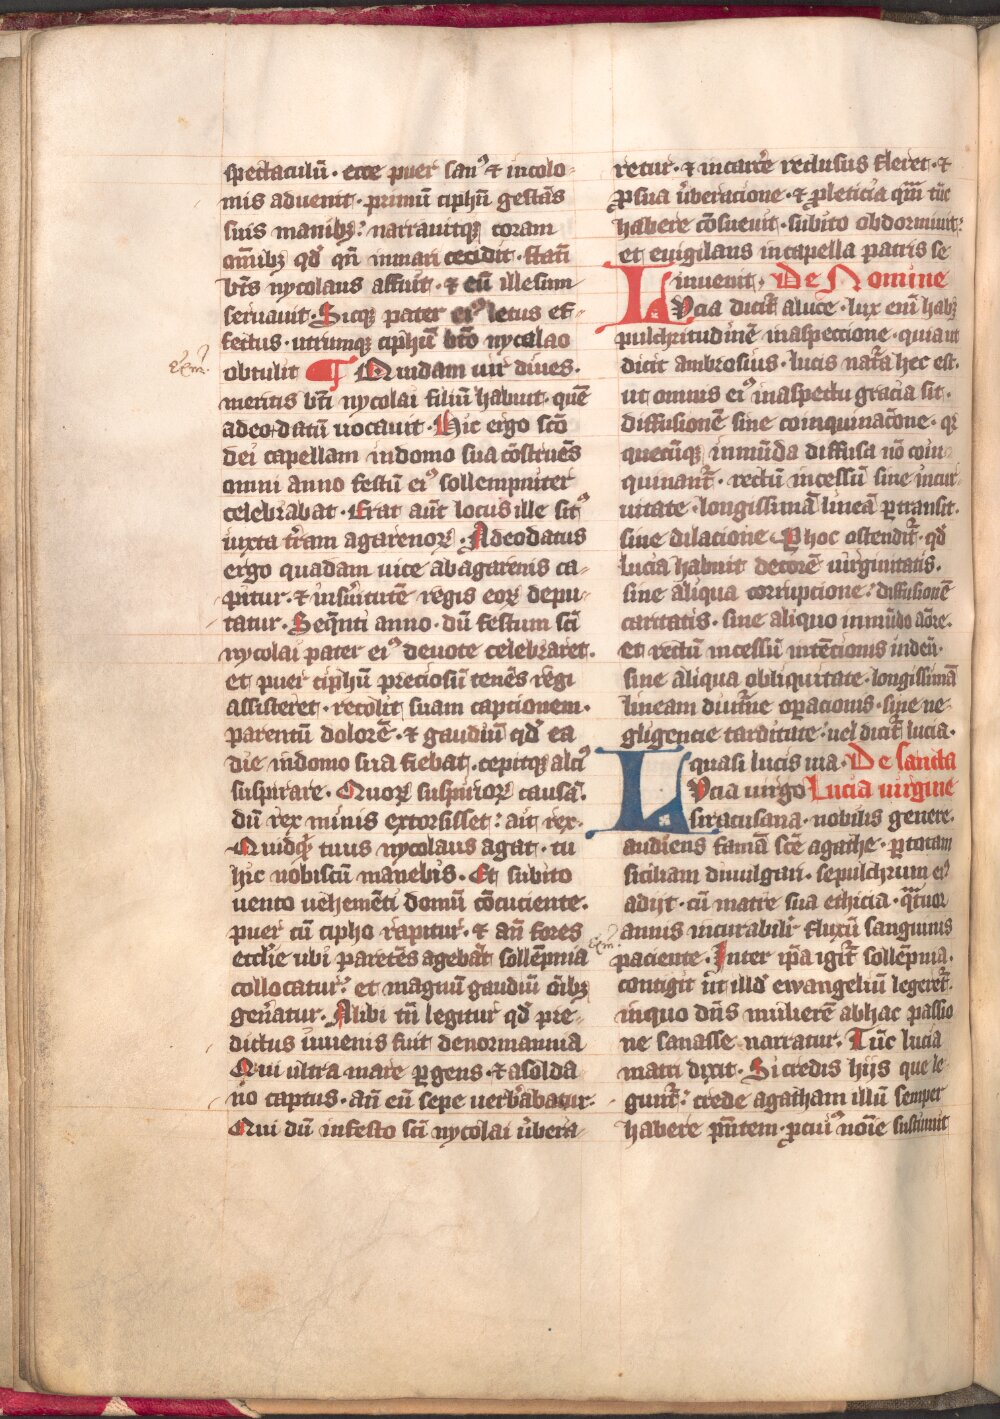 spectaculū · ecce puer san⁹ ⁊ incolo-
mis aduenit · primū ciphū gestās
suis manibꝫ · narrauitqꝫ coram
om̄ibꝫ qd̕ qn̄ in mari cecidit · stati̅
bt̄s nycolaus affuit · ⁊ eū illesum
seruauit · Sicqꝫ pater ei⁹ letus ef-
fectus · utrumqꝫ ciphū bt̄o nycolao
obtulit ¶ Quidam uir diues ·
meritis bt̄i nycolai filiū habuit · quē
adeodatū uocauit · Hic ergo sc̄o
dei capellam in domo sua cōstruēs
omni anno festū ei⁹ sollempniter
celebrabat · Erat aūt locus ille sit⁹
iuxta tr̄am agarenoꝝ · Adeodatus
ergo quadam uice ab agarenis ca-
pitur · ⁊ in s̕uitutē regis eoꝝ depu-
tatur · Seqn̄ti anno · dū festum sc̄i
nycolai pater ei⁹ deuote celebraret ·
et puer ciphū preciosū tenēs regi
assisteret · recolit suam captionem ·
parentū dolorē · ⁊ gaudiū qd̕ ea
die in domo sua fiebat · cepitqꝫ alci⁹
suspirare · Quoꝝ suspirioꝝ causā ·
dū rex minis extorsisset · ait rex ·
Quidqꝫ tuus nycolaus agat · tu
hic nobiscū manebis · Et subito
uento uehemēti domū cōcuciente ·
puer cū cipho rapitur · ⁊ an̄ fores
eccl̕ie ubi parētes agebāt sollēpnia
collocatur · et magnū gaudiū oīb̄ꝫ
gen̄atur · Alibi tn̄ legitur qd̕ pre-
dictus iuuenis fuit de normannia
Qui ultra mare ꝑgens · ⁊ a solda
no captus · an̄ eū sepe uerb̕abatur ·
Qui dū in festo sc̄i nycolai u̕bera-
retur · ⁊ in carc̄e reclusus fleret · ⁊
ꝓ sua u̕beracione · ⁊ ꝓ leticia quā tūc
habere cōsueuit · subito obdormiuit ·
et euigilans in capella patris se
inuenit · De Nomine
LUcia dicit̄ a luce · lux eni̅ habꝫ
pulchritudinē in aspeccione · quia ut
dicit ambrosius · lucis nat̄a hec est ·
ut omnis ei⁹ in aspectu gracia sit ·
diffusionē sine coinquinacōne · qr
quecūqꝫ in mūda diffusa nō coin-
quinant̄ · rectū incessū sine incur-
uitate · longissimā lineā ꝑtransit ·
sine dilacione · Per hoc ostendit̄ · qd̕
lucia habuit decorē uirginitatis ·
sine aliqua corrupcione · diffusionē
caritatis · sine aliquo inmūdo aōre ·
et rectū incessū intēcionis in deū ·
sine aliqua obliquitate · longissimā
lineam diuīne oꝑacionis · sine ne-
gligencie tarditate · uel dicit̄ lucia ·
quasi lucis uia · De sancta
LUcia uirgo Lucia uirgine
siracusana · nobilis genere ·
audiens famā sc̄e agathe · ꝑ totam
siciliam diuulgari · sepulchrum ei⁹
adijt · cū matre sua ethicia · q̄tuor
annis incurabilit̕ fluxū sanguinis
paciente · Inter ip̄a igit̄ sollēpnia ·
contigit ut ill̕d ewangeliū legeret̄ ·
in quo dn̄s mulierē ab hac passio
ne sanasse narratur · Tūc lucia
matri dixit · Si credis hijs que le-
gunt̄ · crede agatham illū semper
habere pn̄tem · ꝓ cui⁹ noīe sustinuit